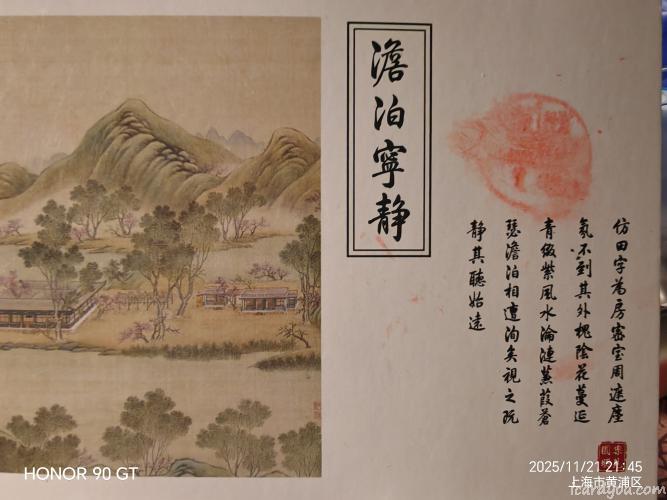 澹泊寧静
仿田字為房密室周遮塵
氛不到其外槐陰花蔓延
青綴紫風水淪漣蒹葭蒼
瑟澹泊相遭洵矣視之既
静其聽始遠
HONOR 90 GT
2025/11/21 21:45
上海市黄浦区
tcarayou.com